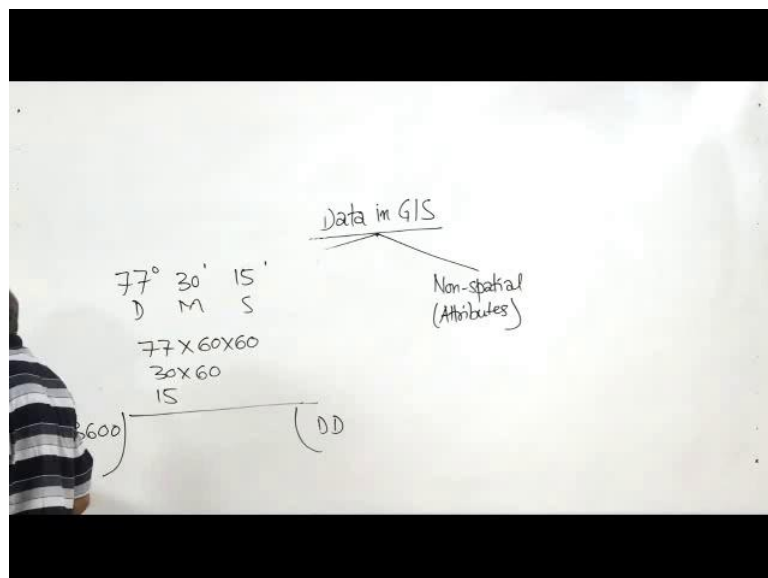 Data in GIS
Non-spatial
(Attributes)
77° 30' 15'
D M S
77 X 60 X 60
30 X 60
15
3600) ( DD